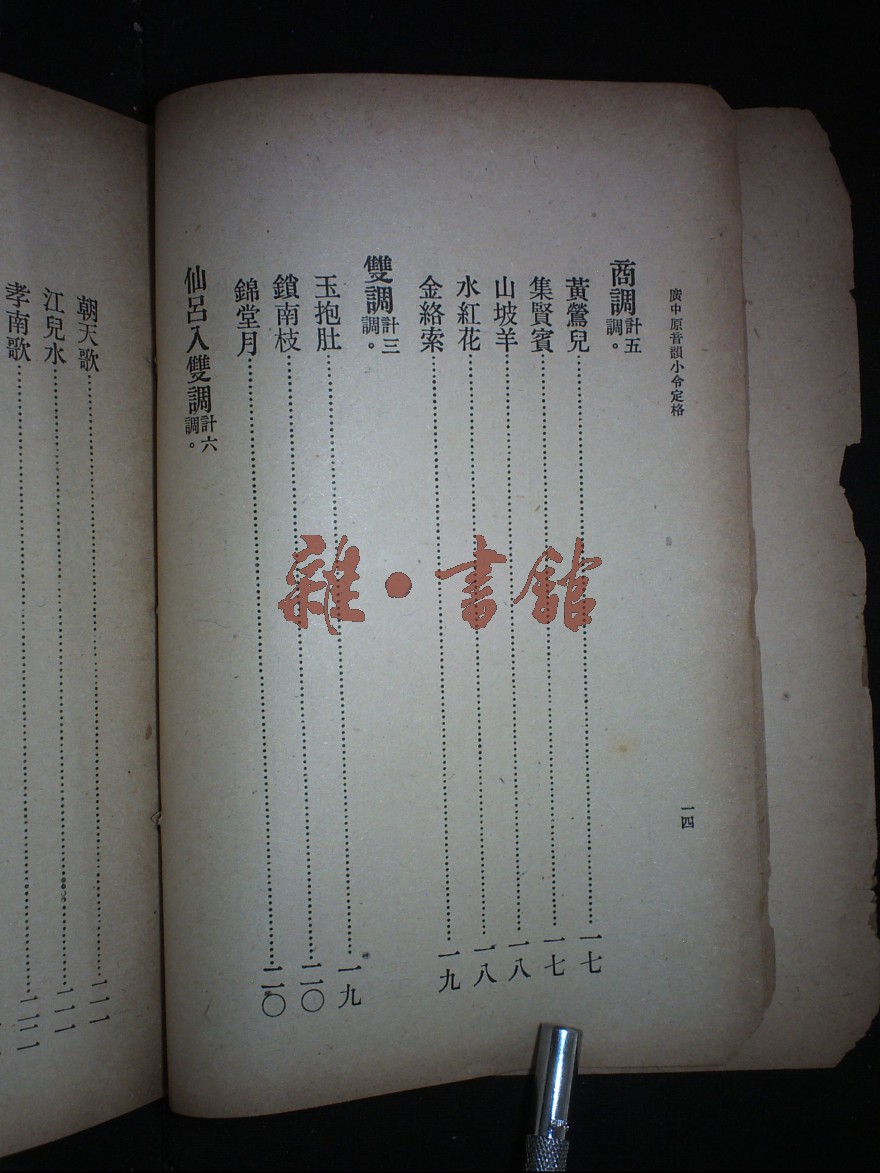 廣中原音韻小令定格
一四
商調計五調。
黃鶯兒……一七
集賢賓……一七
山坡羊……一八
水紅花……一八
金絡索……一九
雙調計三調。
玉抱肚……一九
鎖南枝……二〇
錦堂月……二〇
仙呂入雙調計六調。
朝天歌……二一
江兒水……二一
孝南歌……二二
雜·書館